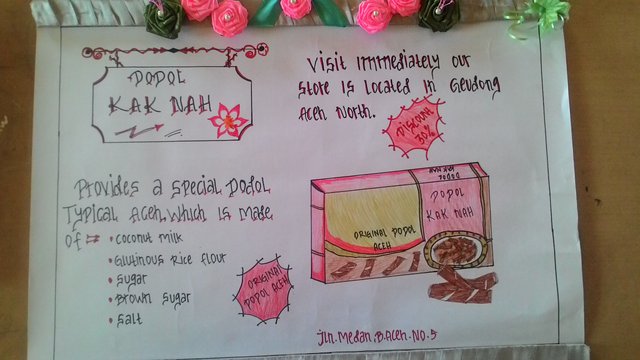 DODOL
KAK NAH
Visit immediately our
store is located in Geudong
Aceh North.
DISCOUNT
30%
Provides a special Dodol
Typical Aceh, which is made
of =
• coconut milk
• Glutinous Rice flour
• Sugar
• Brown Sugar
• Salt
ORIGINAL
DODOL ACEH
DODOL
KAK NAH
DODOL
KAK NAH
ORIGINAL DODOL
ACEH
Jln. Medan, B.Aceh. NO. 5